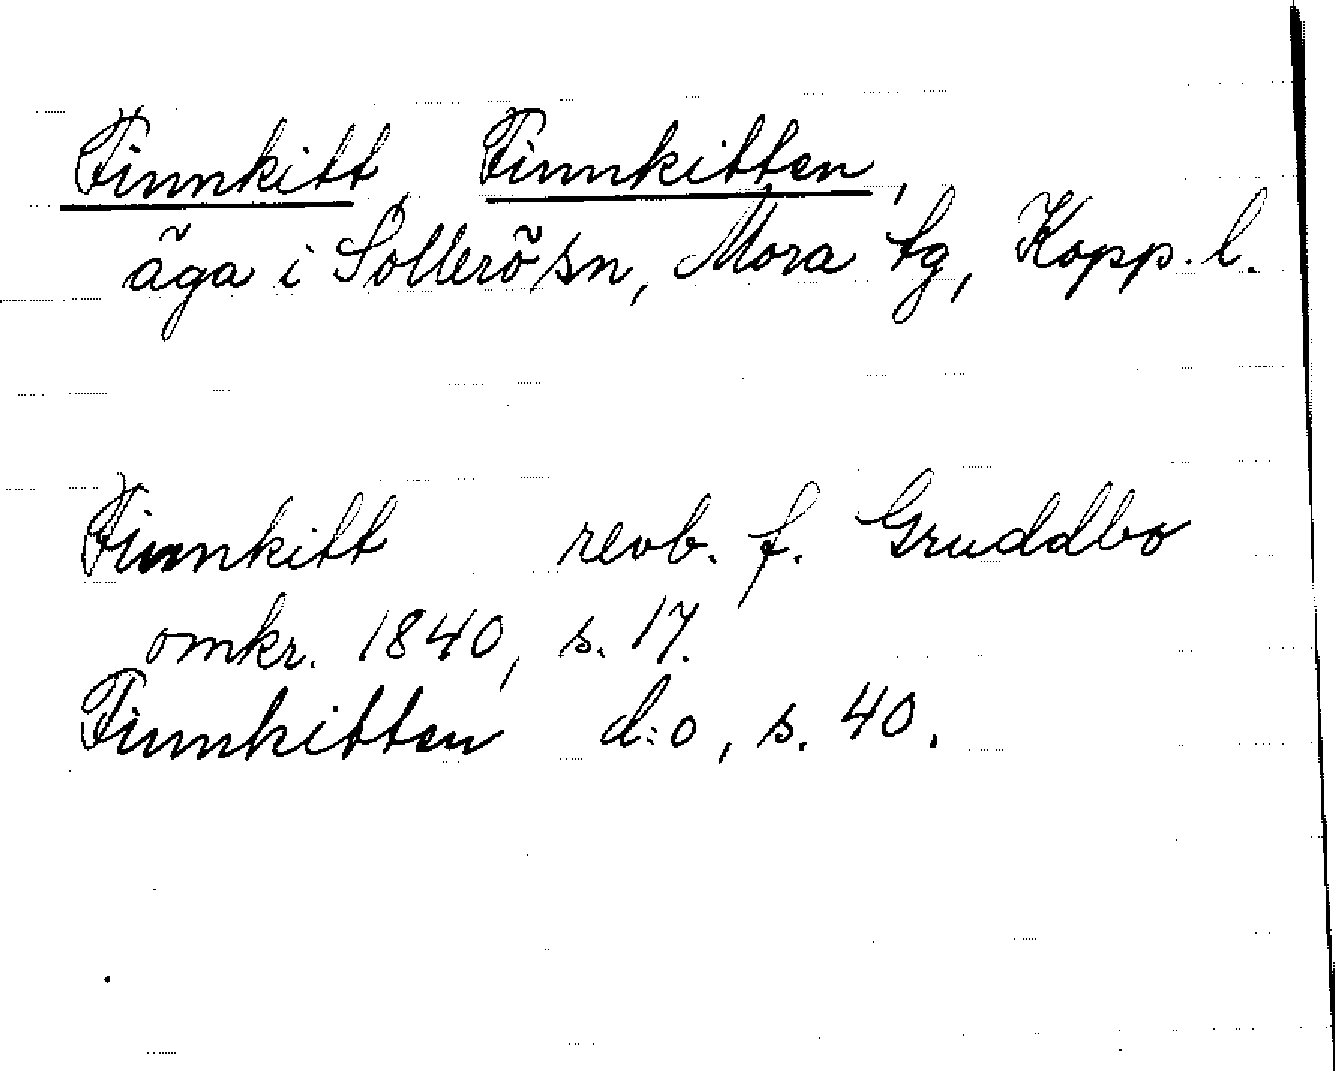 Finnkitt Finnkitten,
äga i Sollerö sn, Mora tg, Kopp. l.
Finnkitt revb. f. Gruddbo
omkr. 1840, s. 17.
Finnkitten d:o, s. 40.